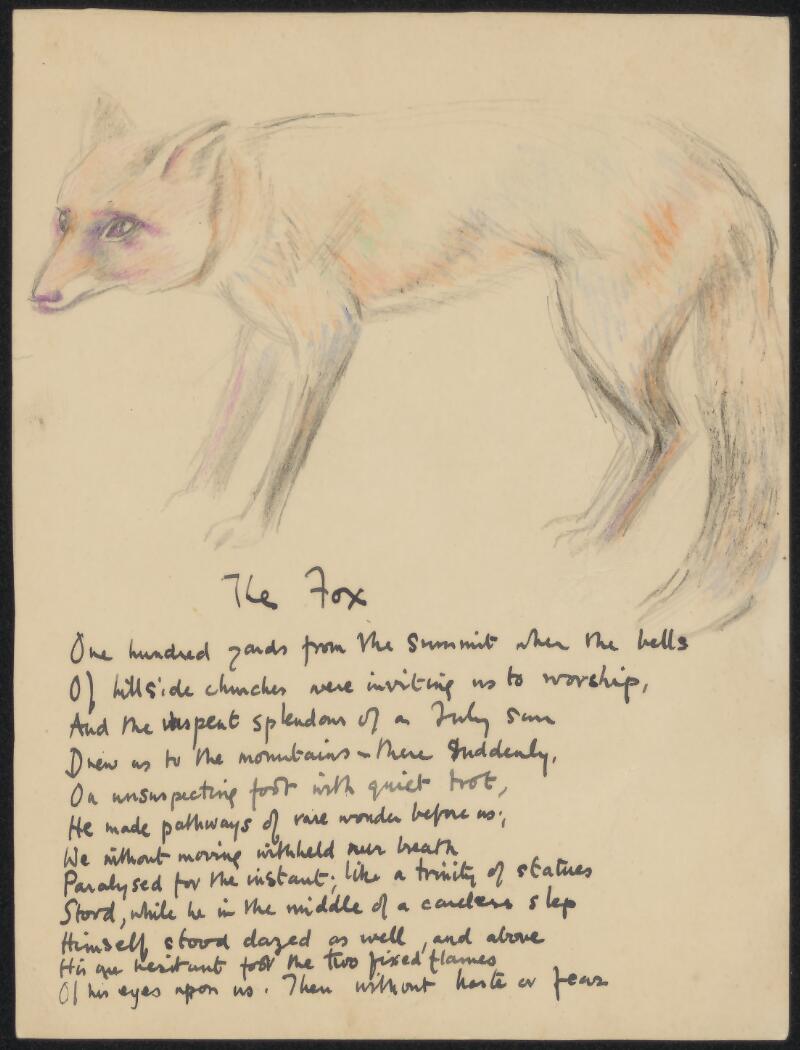 The Fox
One hundred yards from the Summit when the bells
Of hillside churches were inviting us to worship,
And the unspent splendour of a July sun
Drew us to the mountains – there Suddenly,
On unsuspecting foot with quiet trot,
He made pathways of rare wonder before us;
We without moving withheld our breath
Paralysed for the instant; like a trinity of statues
Stood, while he in the middle of a careless step
Himself stood dazed as well, and above
His one hesitant foot the two fixed flames
Of his eyes upon us. Then without haste or fear